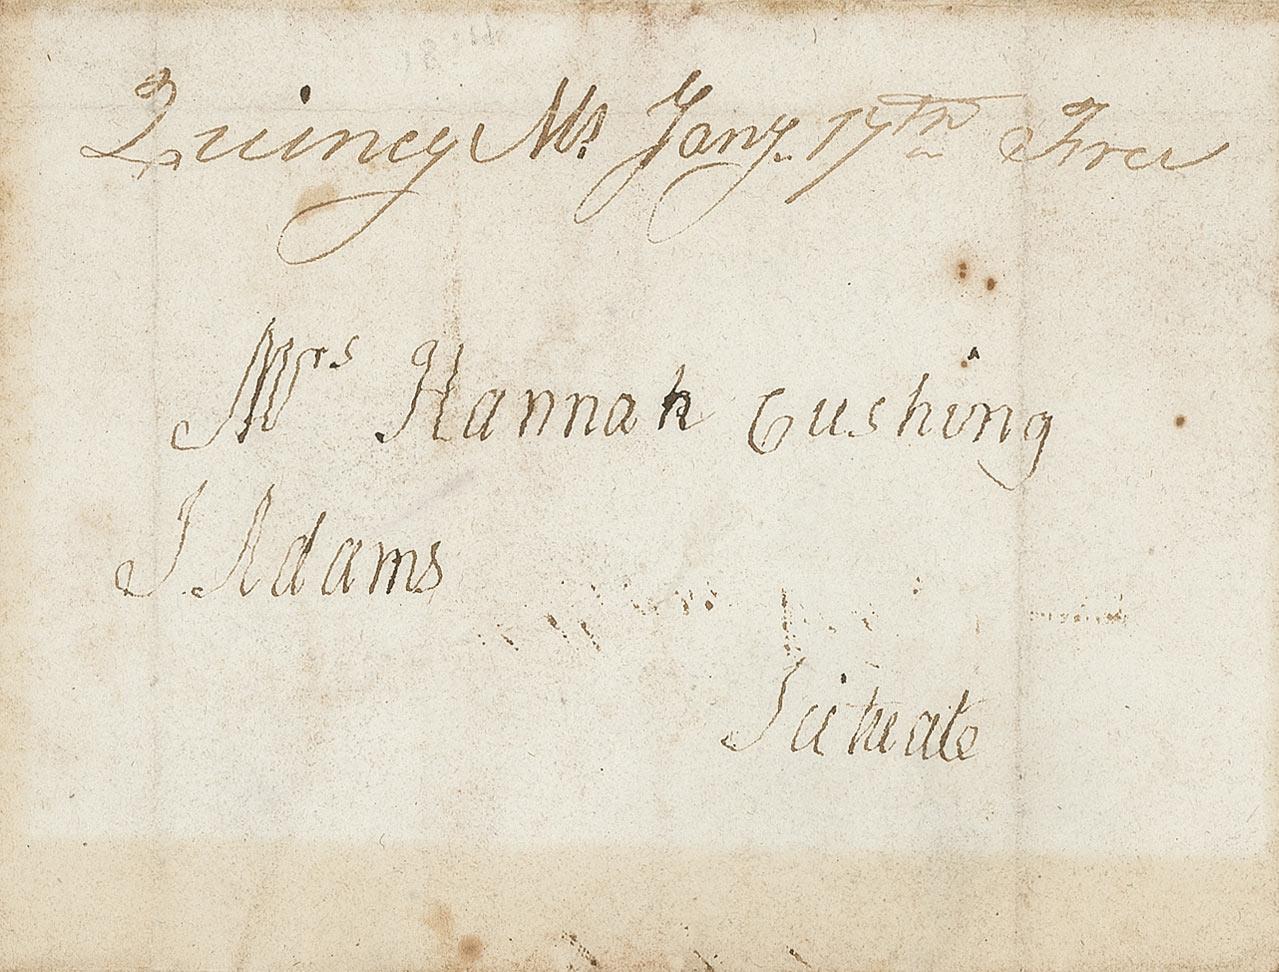 Quincy Ms. Jany. 17th Free
Mrs Hannah Cushing
J. Adams
Scituate